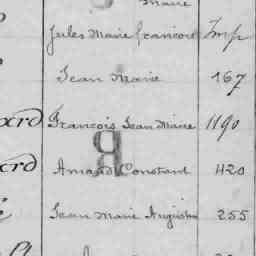 Marie
Jules Marie francois Imp
Jean Marie 167
xrd François Jean Marie 1190
R
xrd Amand Constant 420
Jean Marie Augustin 255